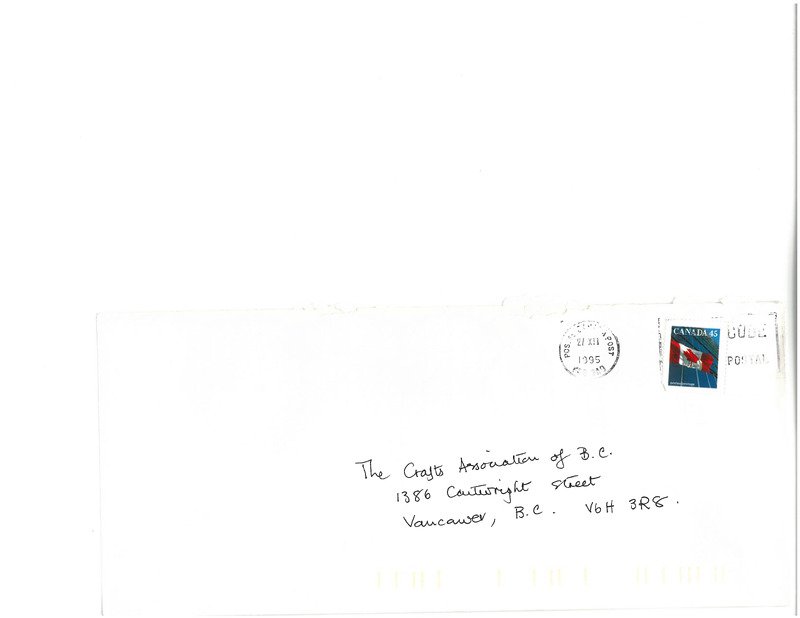 CANADA 45
CODE
POSTAL
27 XII
1995
The Crafts Association of B.C.
1386 Cartwright Street
Vancouver, B.C. V6H 3R8.